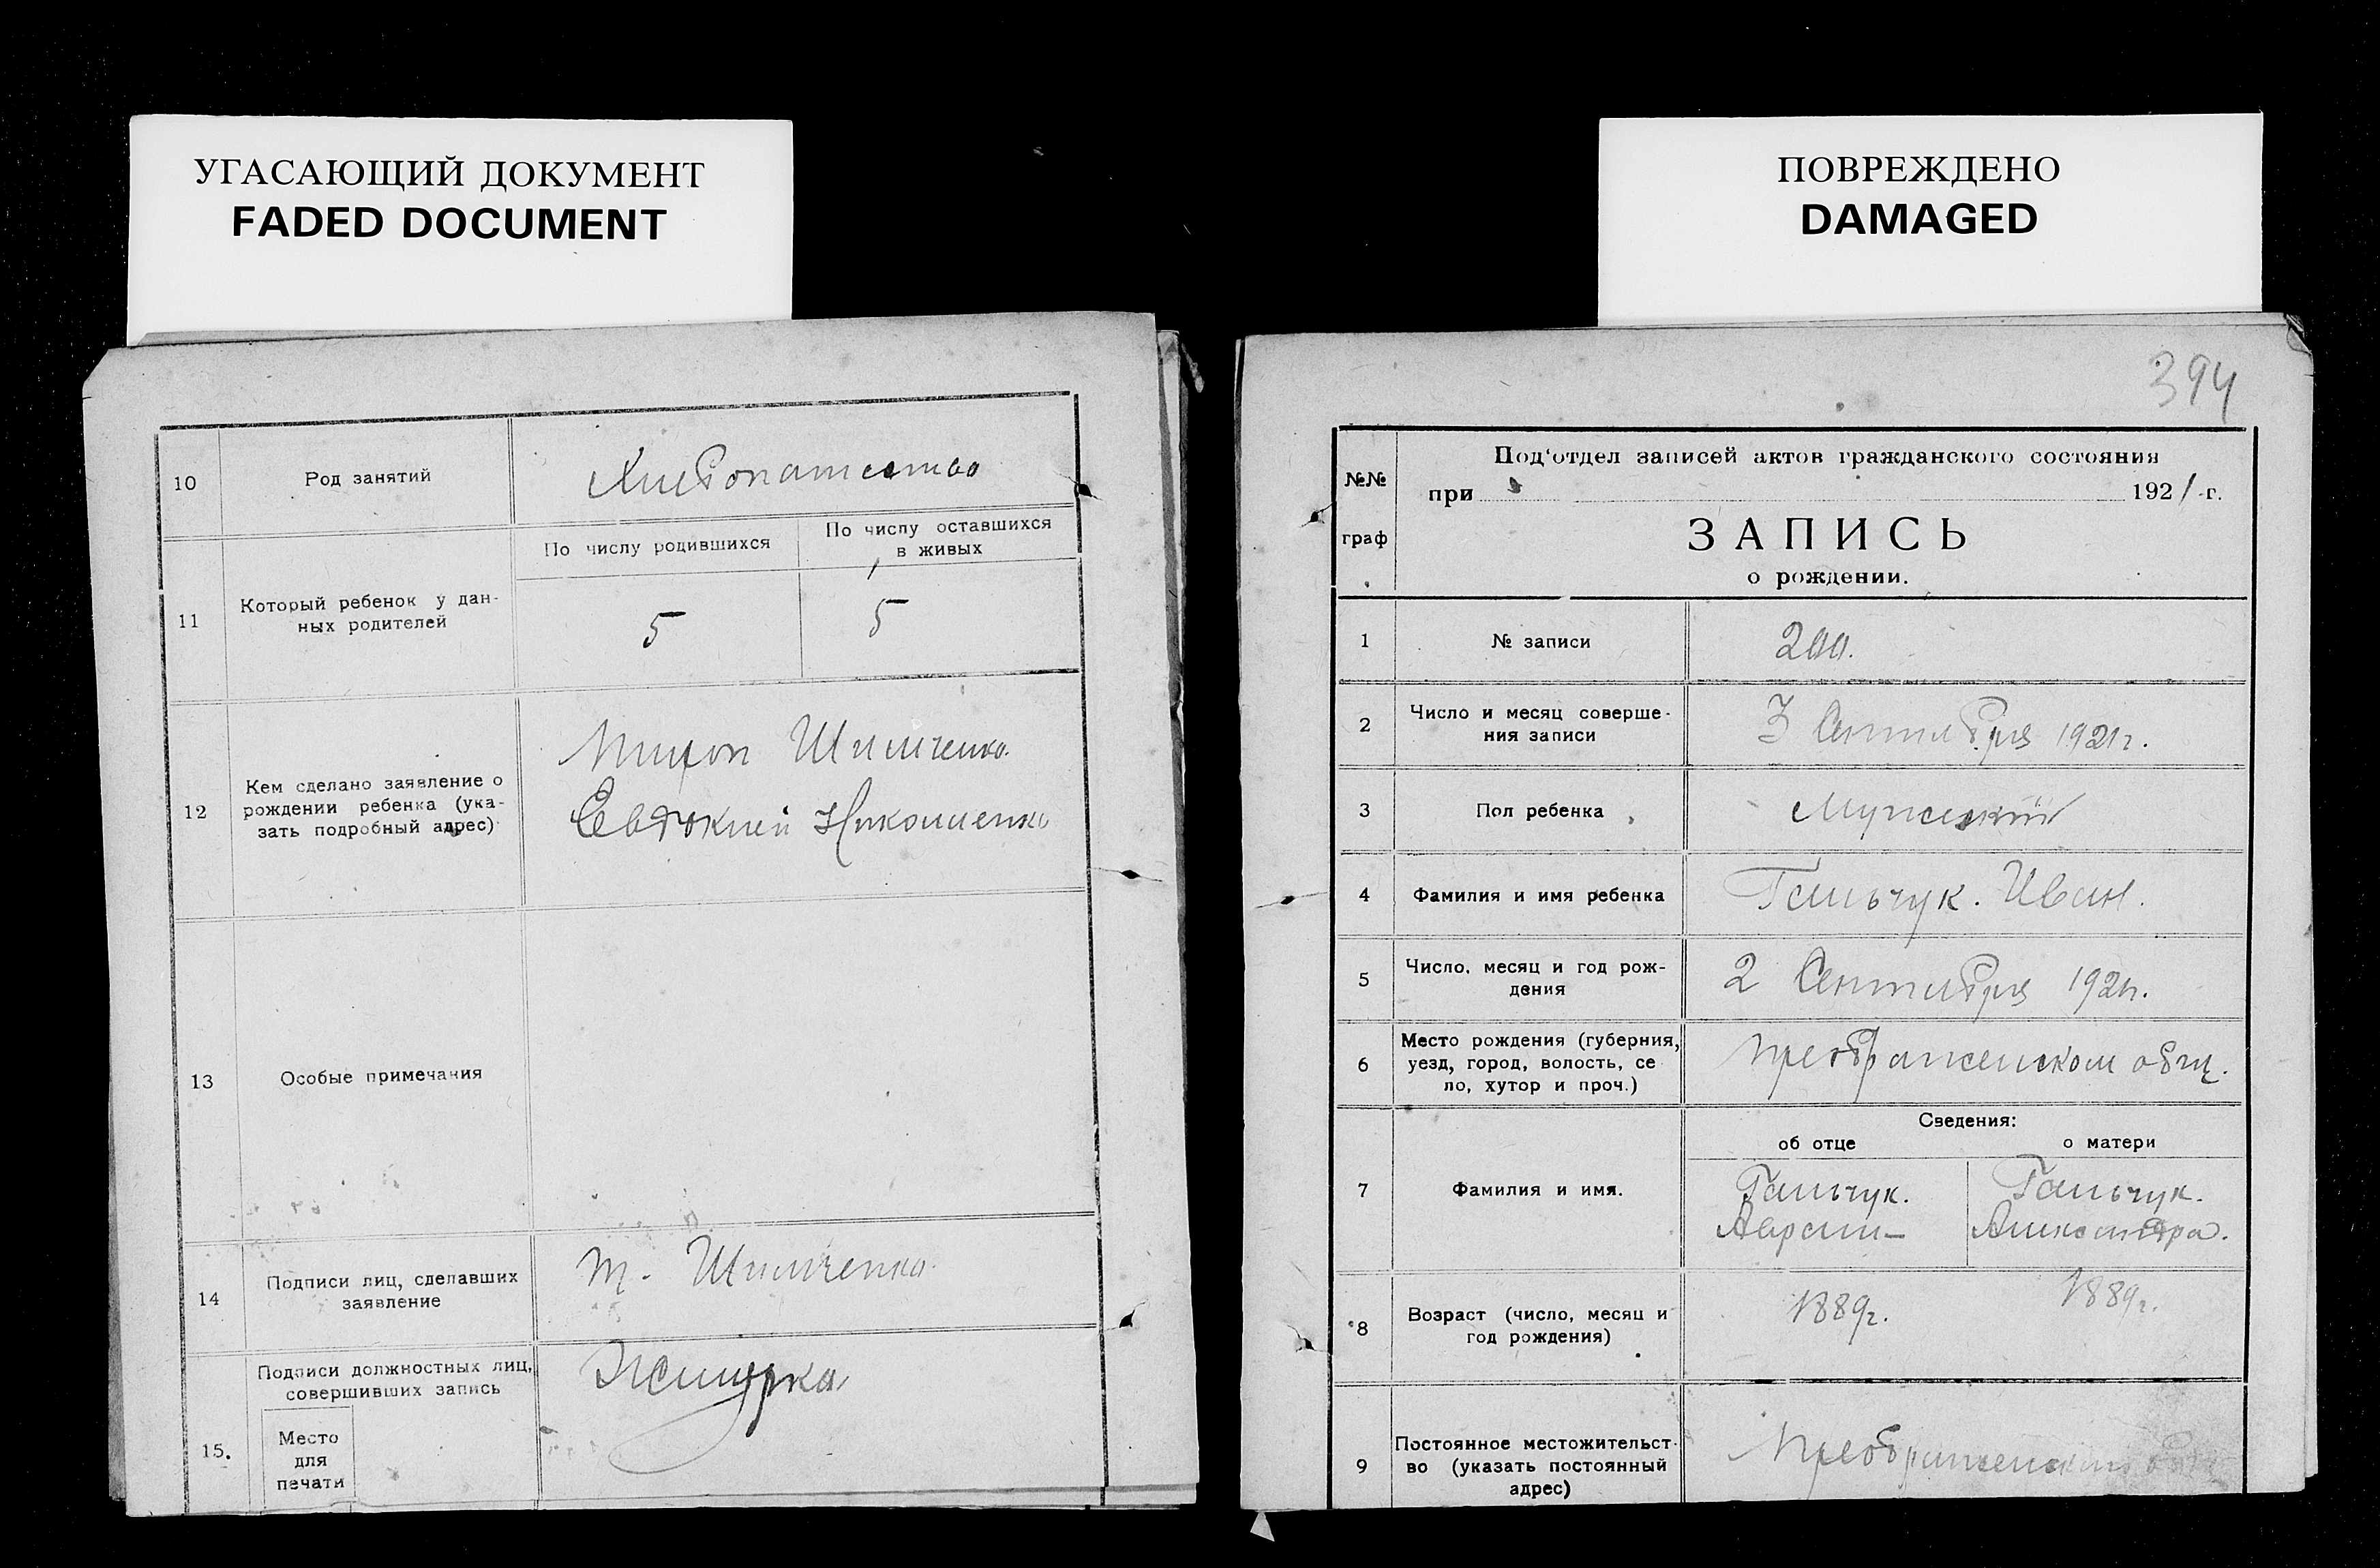 УГАСАЮЩИЙ ДОКУМЕНТ
FADED DOCUMENT
10
Род занятий
Хлебопашество
11
Который ребенок у дан-
ных родителей
По числу родившихся
По числу оставшихся
в живых
5
5
12
Кем сделано заявление о
рождении ребенка (ука-
зать подробный адрес)
Шимченко
Евдокией Николенко
13
Особые примечания
14
Подписи лиц, сделавших
заявление
Шимченко
15.
Подписи должностных лиц,
совершивших запись
Место
для
печати
ПОВРЕЖДЕНО
DAMAGED
394
№№
граф
Под'отдел записей актов гражданского состояния
при 1921 г.
ЗАПИСЬ
о рождении.
1
№ записи
200.
2
Число и месяц соверше-
ния записи
3 Сентября 1921 г.
3
Пол ребенка
Мужский
4
Фамилия и имя ребенка
Гальчук. Иван.
5
Число, месяц и год рож-
дения
2 Сентября 1921 г.
6
Место рождения (губерния,
уезд, город, волость, се
ло, хутор и проч.)
Преображенском общ.
Сведения:
об отце
о матери
7
Фамилия и имя.
Гальчук.
Аврам
Гальчук.
Александра.
8
Возраст (число, месяц и
год рождения)
1889 г.
1889 г.
9
Постоянное местожительст-
во (указать постоянный
адрес)